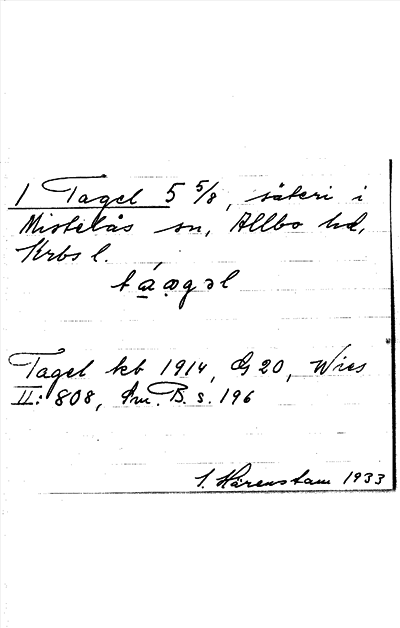 1 Tagel 5 5/8, säteri i
Mistelås sn, Allbo hd,
Krbs l.
Tagel kb 1914, G 20, Wies
II: 808, Am. B. s. 196
S. Härenstam 1933